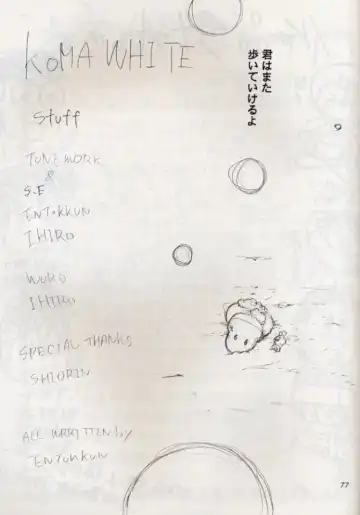 KOMA WHITE
Stuff
TONE WORK
&
S.E
ENTOKKUN
IHIRO
WORD
IHIRO
SPECIAL THANKS
SHIORIN
ALL WRRITTEN by
ENTOKKUN
君はまた
歩いていけるよ
77